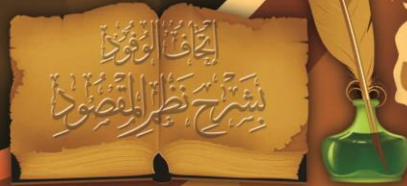 إتحاف الوفود
بشرح نظم المقصود